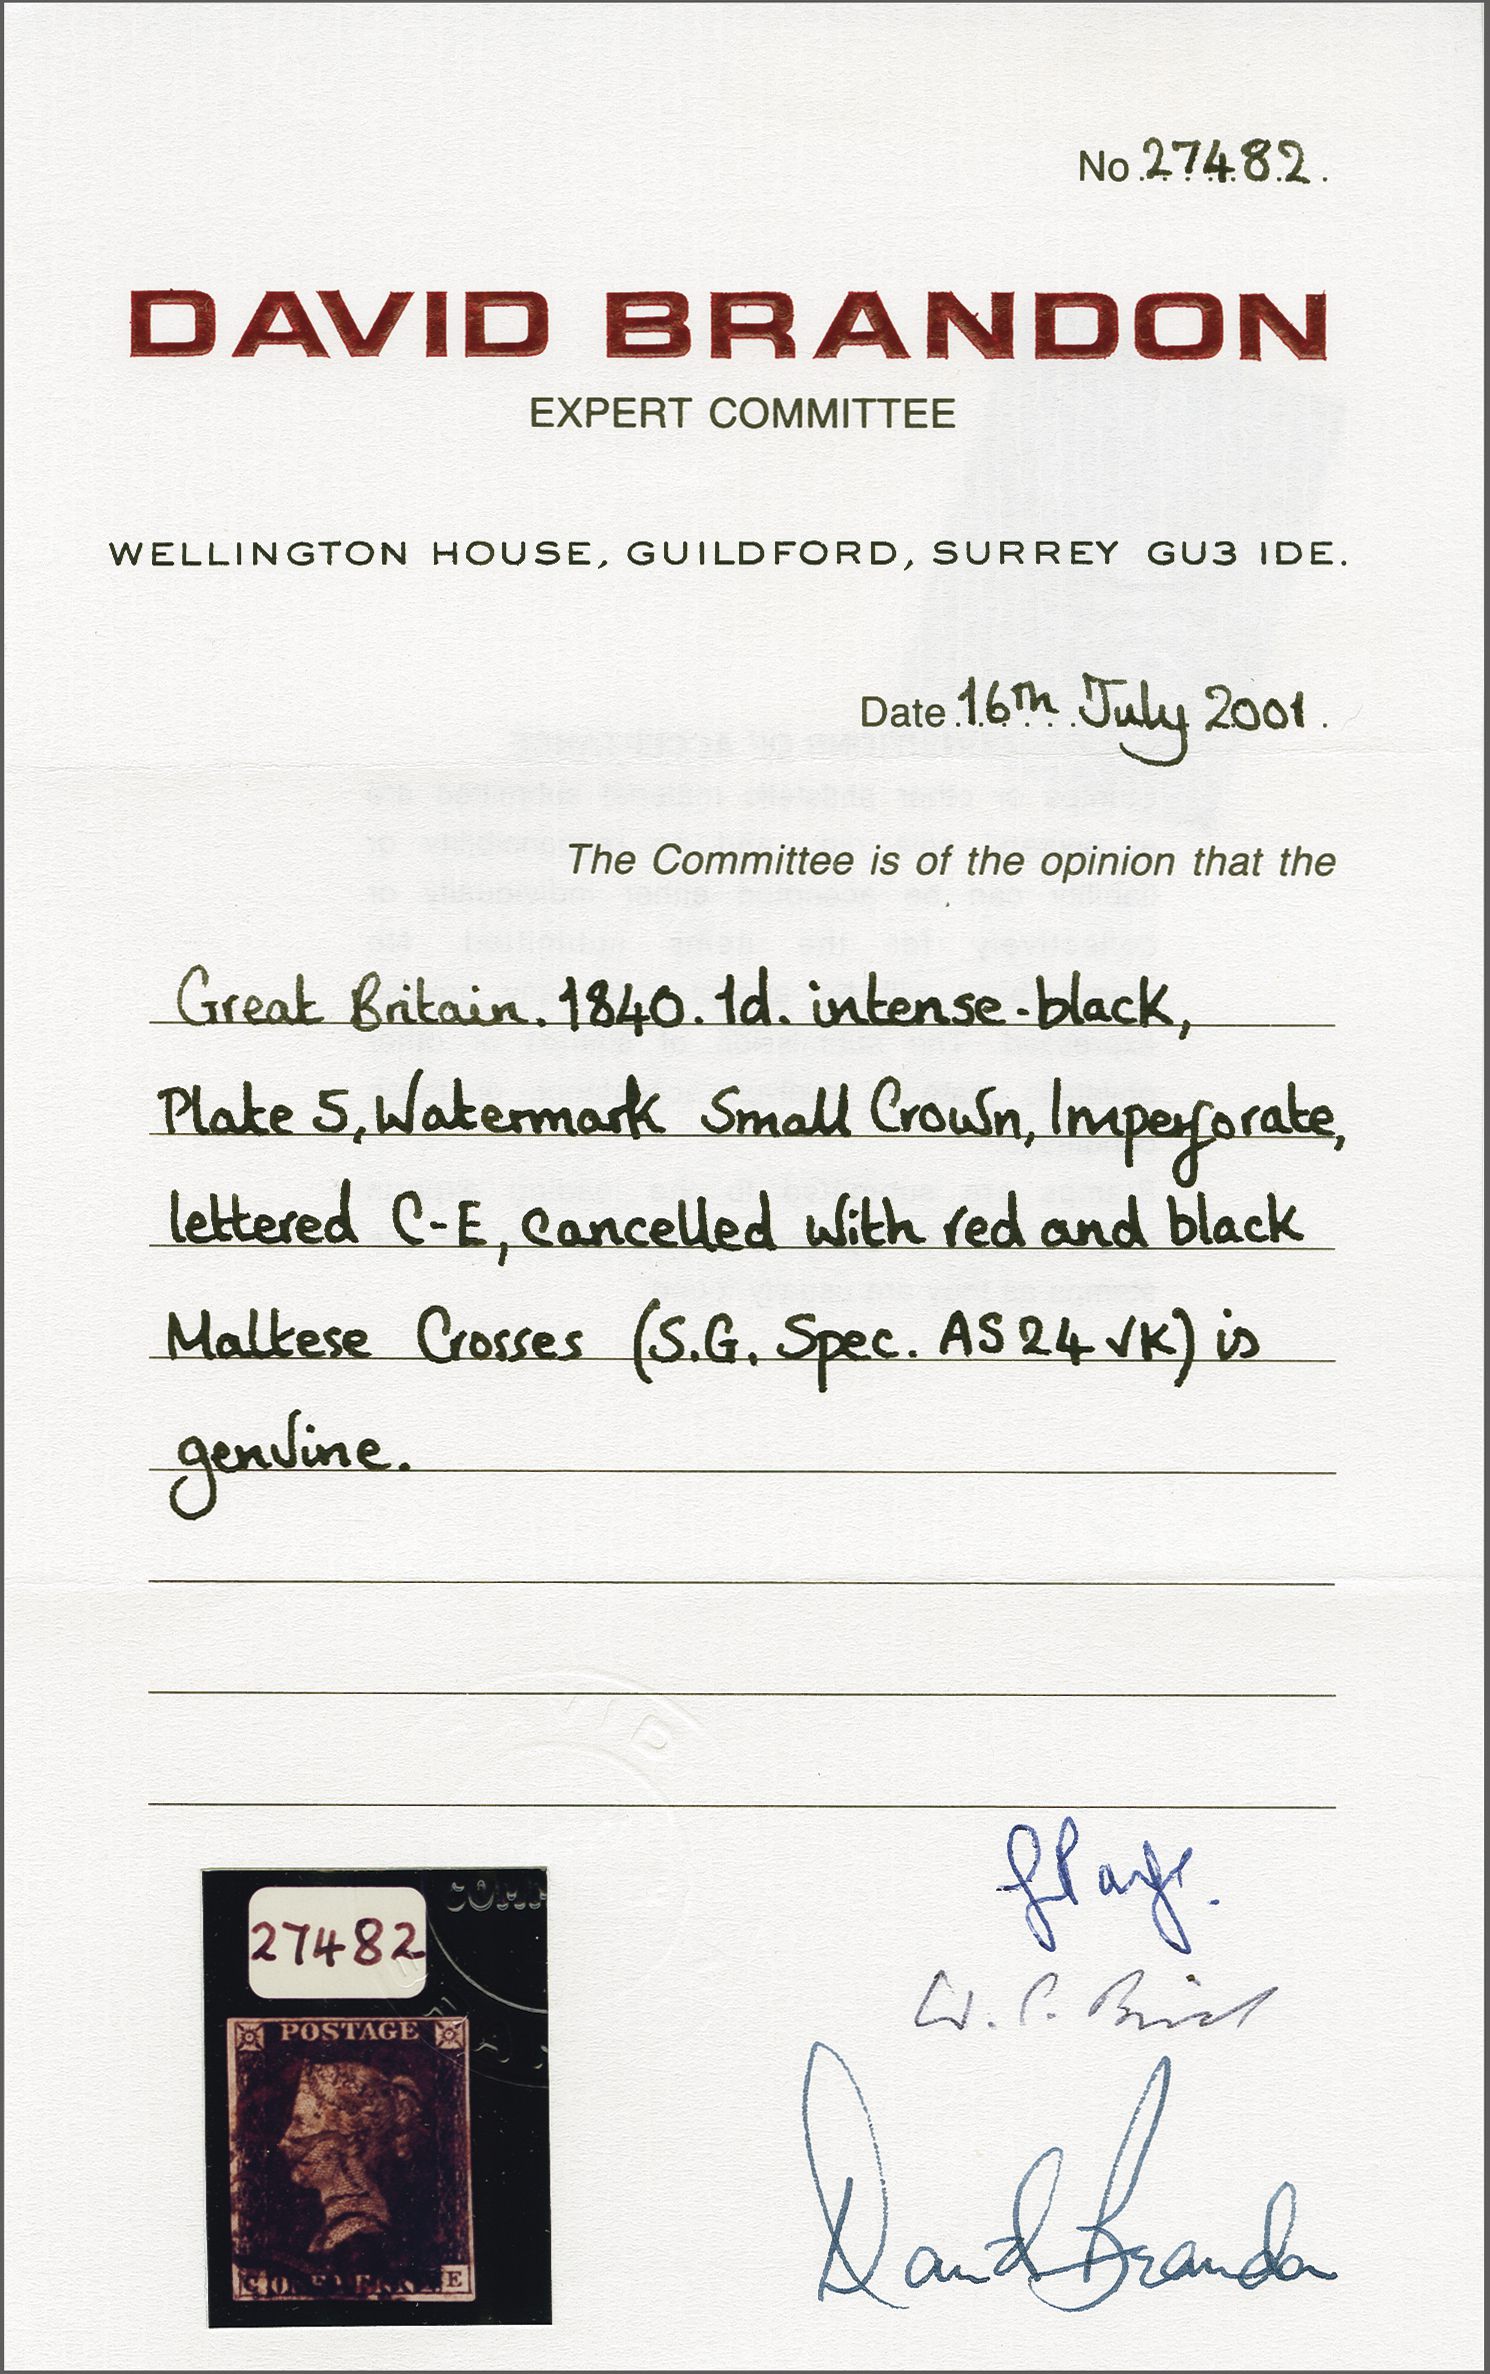 No 27482.
DAVID BRANDON
EXPERT COMMITTEE
WELLINGTON HOUSE, GUILDFORD, SURREY GU3 1DE.
Date 16th July 2001.
The Committee is of the opinion that the
Great Britain. 1840. 1d. intense-black,
Plate 5, Watermark Small Crown, Imperforate,
lettered C-E, cancelled with red and black
Maltese Crosses (S.G. Spec. AS24 VK) is
genuine.
27482
POSTAGE
C ONE PENNY E
W. P. Bird
David Brandon